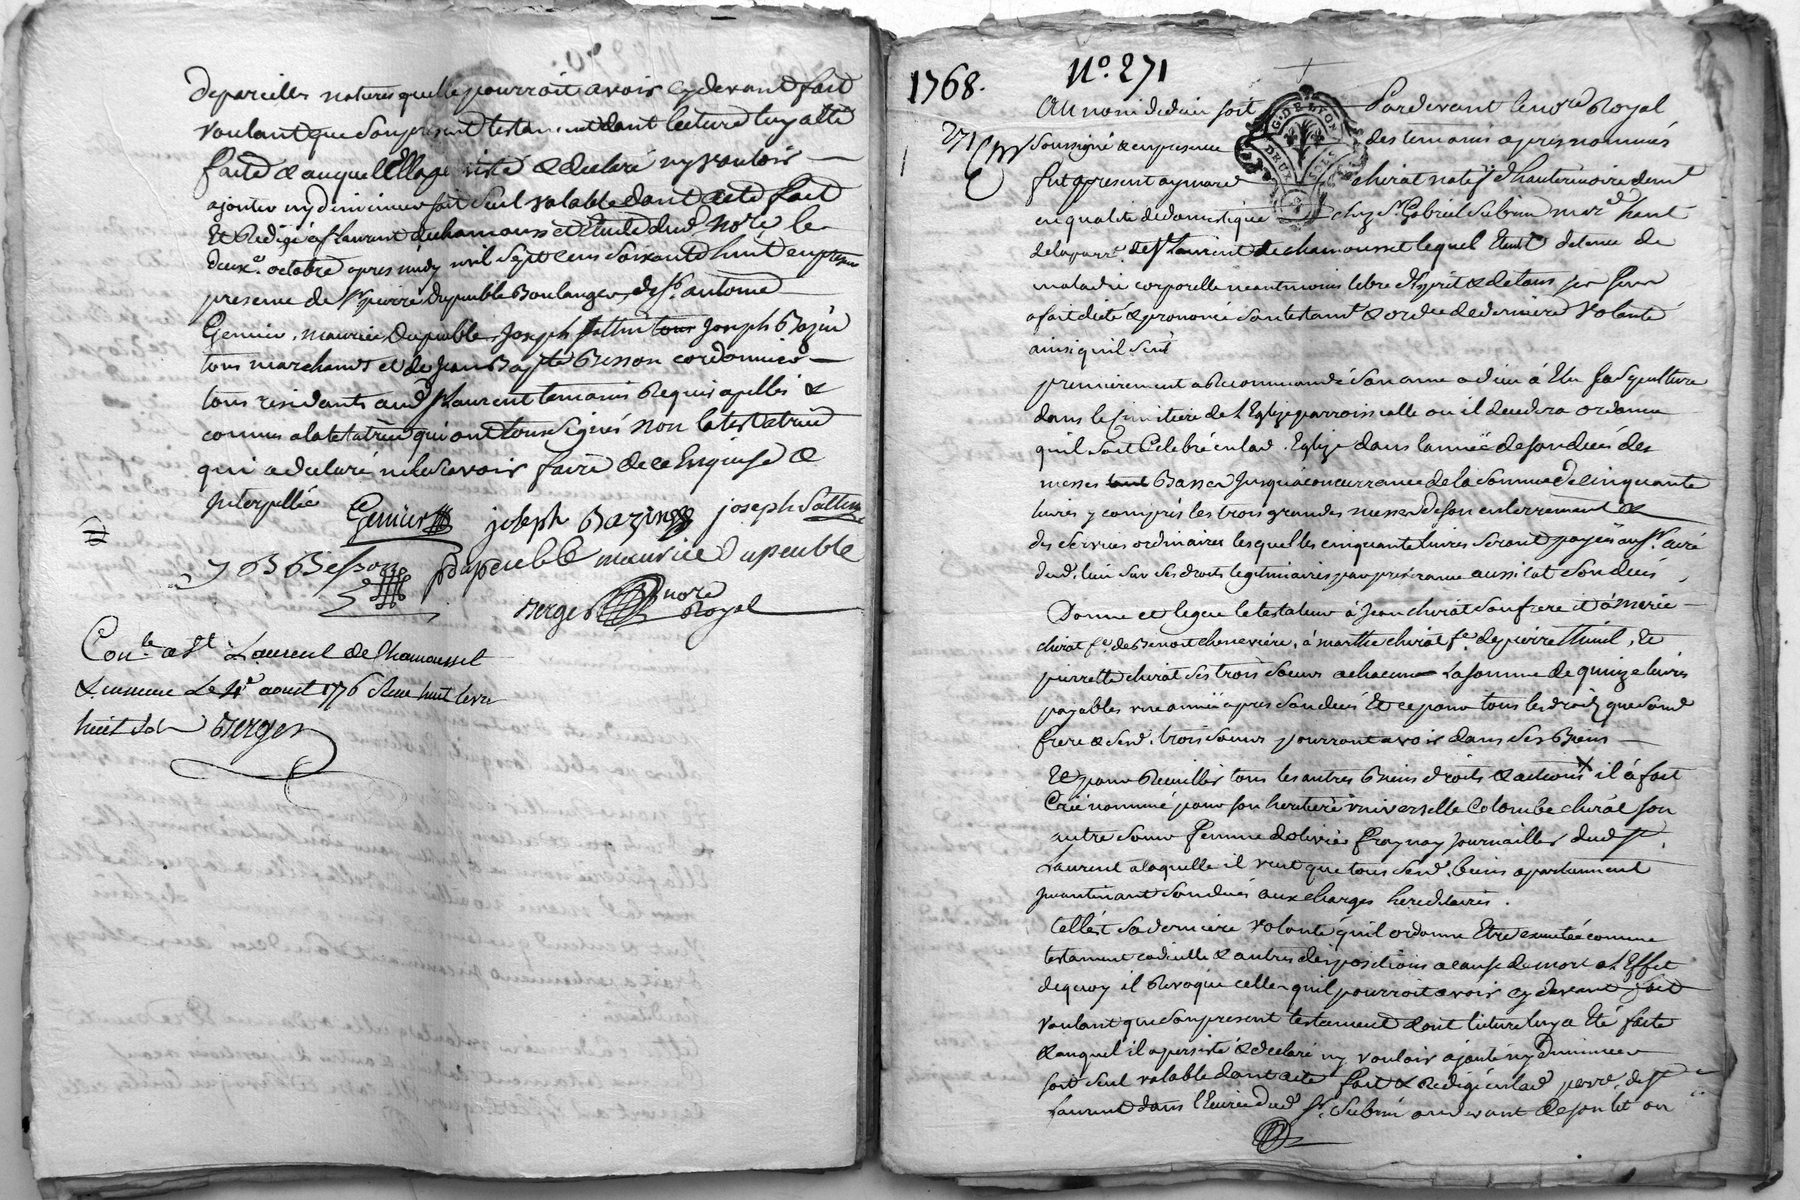 de pareilles natures quelle pourroit avoir cydevant fait
voulant que son present testament dont lecture luy a été
faite & auquel Elle a persisté & declaré ny vouloir
ajouter ny diminuer soit seul valable dont acte fait
Et Redigé a St Laurent de chamousset Etude dud. Nore le
deuxe. octobre apres midy mil sept cens soixante huit en
presence de Sr pierre Dupeuble Boulanger, de Sr. antoine
Genier, maurice Dupeuble, Joseph sattin Joseph Bazin
tous marchands et de Jean Bapte Besson cordonnier
tous residants aud. St Laurent temoins Requis apellés &
connus a la testatrice qui ont tous signés non la testatrice
qui a declaré ne le scavoir faire de ce Enquise &
Interpellée
Genier joseph Bazin joseph Sattin
J B Besson p dupeuble maurice Dupeuble
Berger nore
Royal
Conle. a St Laurent de Chamousset
le 4e aout 1776 Reçu huit livres
huit sols Berger
1768. No. 271
271
Au nom de dieu soit Pardevant le nore Royal
soussigné & en presence des temoins apres nommés
fut present aymard chirat natif d'hauterivoire demt
en qualité de domestique chez Sr. Gabriel Subrin mard. hent
de la parre. de St Laurent de chamousset lequel Etant detenu de
maladie corporelle neantmoins libre d'Esprit & de tous ses sens
a fait dicté & prononcé son testamt & ordre de derniere volonté
ainsi qu'il suit
premierement a Recommandé son ame a dieu a Elu sa sepulture
dans le Cimitiere de l'Eglise parroissialle ou il decedera ordonne
qu'il soit Celebré en lad. Eglize dans l'année de son decés des
messes Basses Jusqu'a concurrance de la somme de cinquante
livres y compris les trois grandes messes de son enterrement &
des services ordinaires lesquelles cinquante livres seront payées au Sr. curé
dud. lieu sur ses droits legitimaires par preferance aussitot son decés,
Donne et legue le testateur à Jean chirat son frere et à merie
chirat fe. de Benoit chenevriere, à marthe chirat fe. de pierre thinil, Et
pierrette chirat ses trois soeurs a chacun la somme de quinze livres
payables une année apres son decés Et ce pour tous les droits que sond.
frere & sesd. trois soeurs pourront avoir dans ses Biens
Et pour Recuillir tous les autres biens droits & actions il à fait
Créé nommé pour son heritiere universelle Colombe chirat son
autre soeur femme d'olivier fraynay journallier dud. St.
Laurent a laquelle il veut que tous sesd. biens apartiennent
Incontinant son decés aux charges hereditaires.
Telle est sa derniere volonté qu'il ordonne Etre executée comme
testament codicille & autres dispositions a cause de mort a l'Effet
de quoy il Revoque celles qu'il pourroit avoir cy devant fait
voulant que son present testament dont lecture luy a Eté faite
& auquel il a persisté & declaré ny vouloir ajouter ny Diminuer
soit seul valable dont acte fait & Redigé en lad. parre. de St
Laurent dans l'Ecurie dud. Sr. Subrin au devant de son lit ou